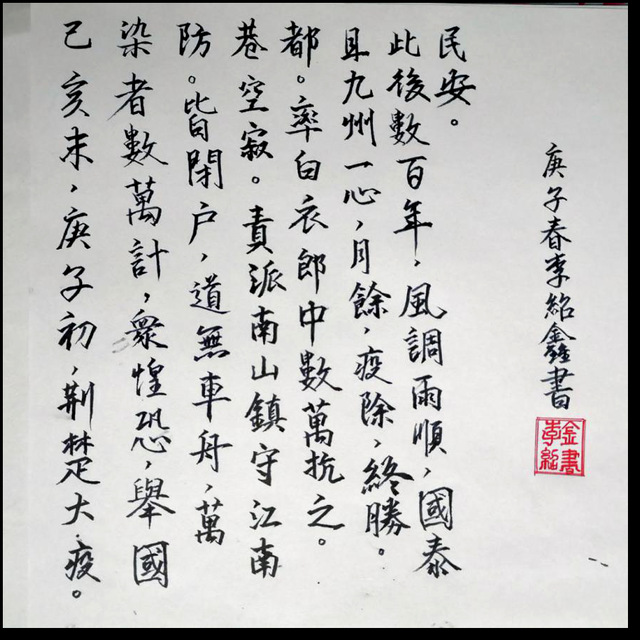 己亥末，庚子初，荆楚大疫。
染者數萬計，衆惶恐，舉國
防。皆閉户，道無車舟，萬
巷空寂。責派南山鎮守江南
都。率白衣郎中數萬抗之。
且九州一心，月餘，疫除，終勝。
此後數百年，風調雨順，國泰
民安。
庚子春李紹鑫書